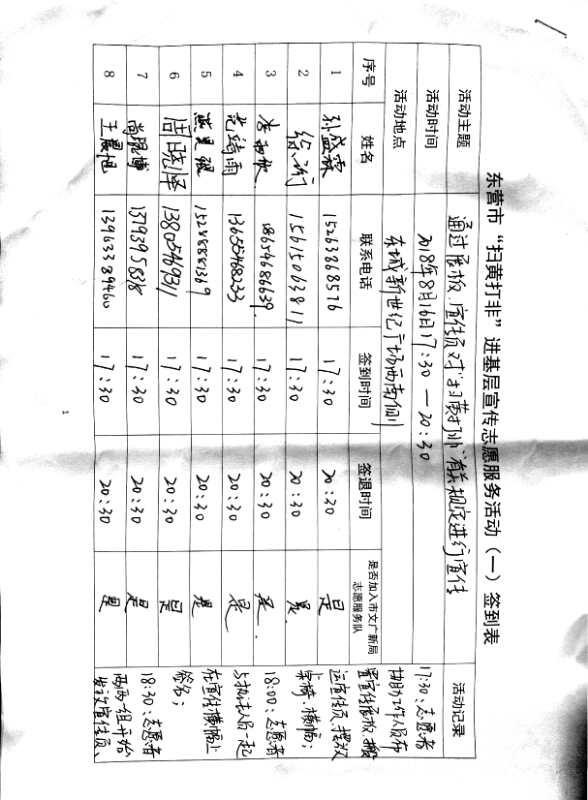 东营市“扫黄打非”进基层宣传志愿服务活动（一）签到表
活动主题 通过展板、宣传页对“扫黄打非”有关规定进行宣传
活动时间 2018年8月16日17:30—20:30
活动地点 东城新世纪广场西南侧
序号 姓名 联系电话 签到时间 签退时间 是否加入市文广新局志愿服务队 活动记录
1 孙盛霖 15263868576 17:30 20:30 是
2 15615063811 17:30 20:30 是.
3 18654686639. 17:30 20:30 是.
4 范琦雨 13655468233 17:30 20:30 是
5 15288881369 17:30 20:30 是
6 周晓泽 13805469311 17:30 20:30 是
7 尚昆博 17:30 20:30 是
8 王晨旭 13963389460 17:30 20:30 是
17:30:志愿者
协助工作人员布
置宣传展板、搬
运宣传页、摆放
桌椅、横幅；
18:00:志愿者
与执法人员一起
在宣传横幅上
签名；
18:30:志愿者
两两一组开始
发放宣传页、
1